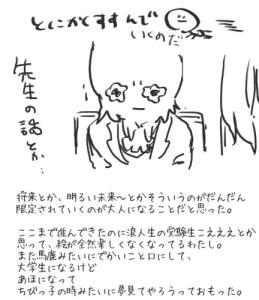 とにかくすすんで
いくのだ
先生の話とか…
将来とか、明るい未来～とかそういうのがだんだん
限定されていくのが大人になることだと思った。
ここまで進んできたのに浪人生の受験生こえええとか
思って、絵が全然楽しくなくなってるわたし。
また馬鹿みたいにでかいこと口にして、
大学生になるけど
あほになって
ちびっ子の時みたいに夢見てやろうっておもった。